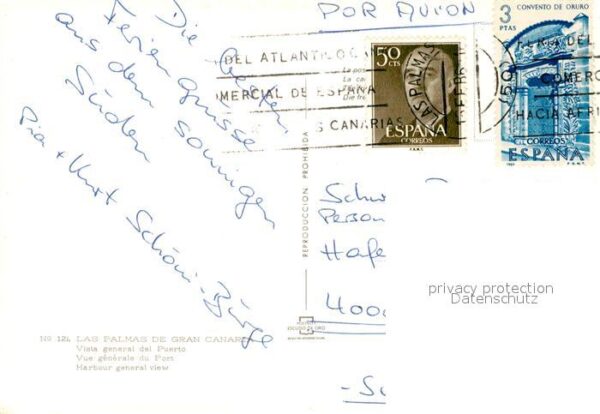 POR AVION
Die
Feriengrüsse
aus dem sonnigen
Süden
Pia + Kurt Schöni-Bürge
Nº 121. LAS PALMAS DE GRAN CANARIA
Vista general del Puerto
Vue générale du Port
Harbour general view
REPRODUCCION PROHIBIDA
ESCUDO DE ORO
DEL ATLANTICO
COMERCIAL DE ESPAÑA
CANARIAS
LAS PALMAS
50
CTS
ESPAÑA
CORREOS
F.N.M.T.
3
PTAS
CONVENTO DE ORURO
FERIA DEL
COMERCI
HACIA AFRI
CORREOS
ESPAÑA
1967
F.N.M.T.
Schw
Person
Hafe
400
privacy protection
Datenschutz